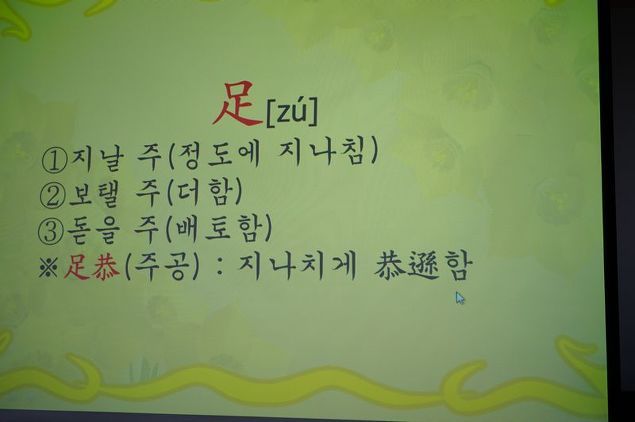 足[zú]
①지날 주(정도에 지나침)
②보탤 주(더함)
③돋을 주(배토함)
※足恭(주공) : 지나치게 恭遜함